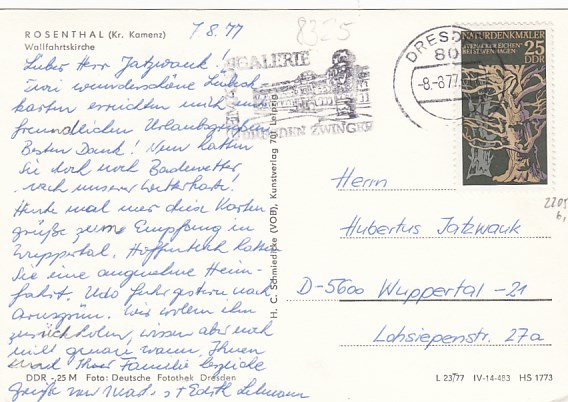 ROSENTHAL (Kr. Kamenz)
Wallfahrtskirche
7.8.77
8325
Lieber Herr Jatzwauk!
Zwei wunderschöne Lübeck-
karten erreichten mich mit
freundlichen Urlaubsgrüßen
Besten Dank! Nun hatten
Sie doch noch Badewetter
nach unserer Wetterkarte!
Heute mal nur diese Karten-
grüße zum Empfang in
Wuppertal. Hoffentlich hatten
Sie eine angenehme Heim-
fahrt. Udo fuhr gestern nach
Wir wollen ihn
zurückholen, wissen aber noch
nicht genau wann, Ihnen
und Ihrer Familie herzliche
Grüße von Edith Lehmann
DDR · 25 M Foto: Deutsche Fotothek Dresden
H. C. Schmiedicke (VOB), Kunstverlag 701 Leipzig
GEMÄLDEGALERIE
DRESDEN ZWINGER
DRESDEN
80
-8.-8.77
NATURDENKMALER
IVENACKER EICHEN
BEI STAVENHAGEN
25
DDR
Herrn
Hubertus Jatzwauk
D-5600 Wuppertal -21
Lohsiepenstr. 27a
L 23/77 IV-14-483 HS 1773